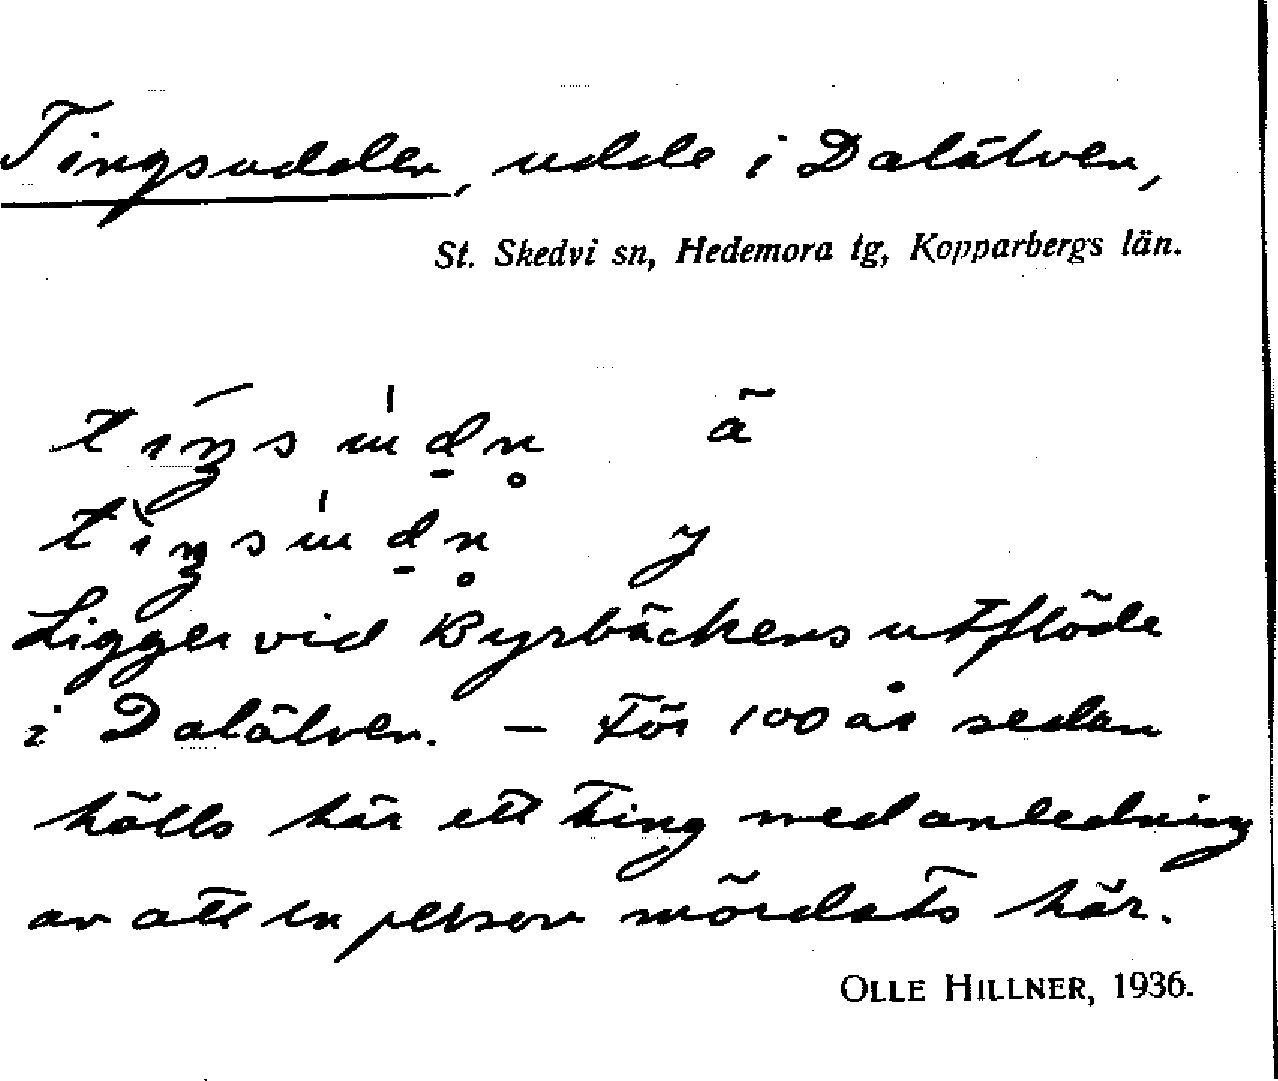 Tingsudden, udde i Dalälven,
St. Skedvi sn, Hedemora tg, Kopparbergs län.
ä
y
Ligger vid Byrbäckens utflöde
i Dalälven. — För 100 år sedan
hölls här ett ting med anledning
av att en person mördats här.
OLLE HILLNER, 1936.